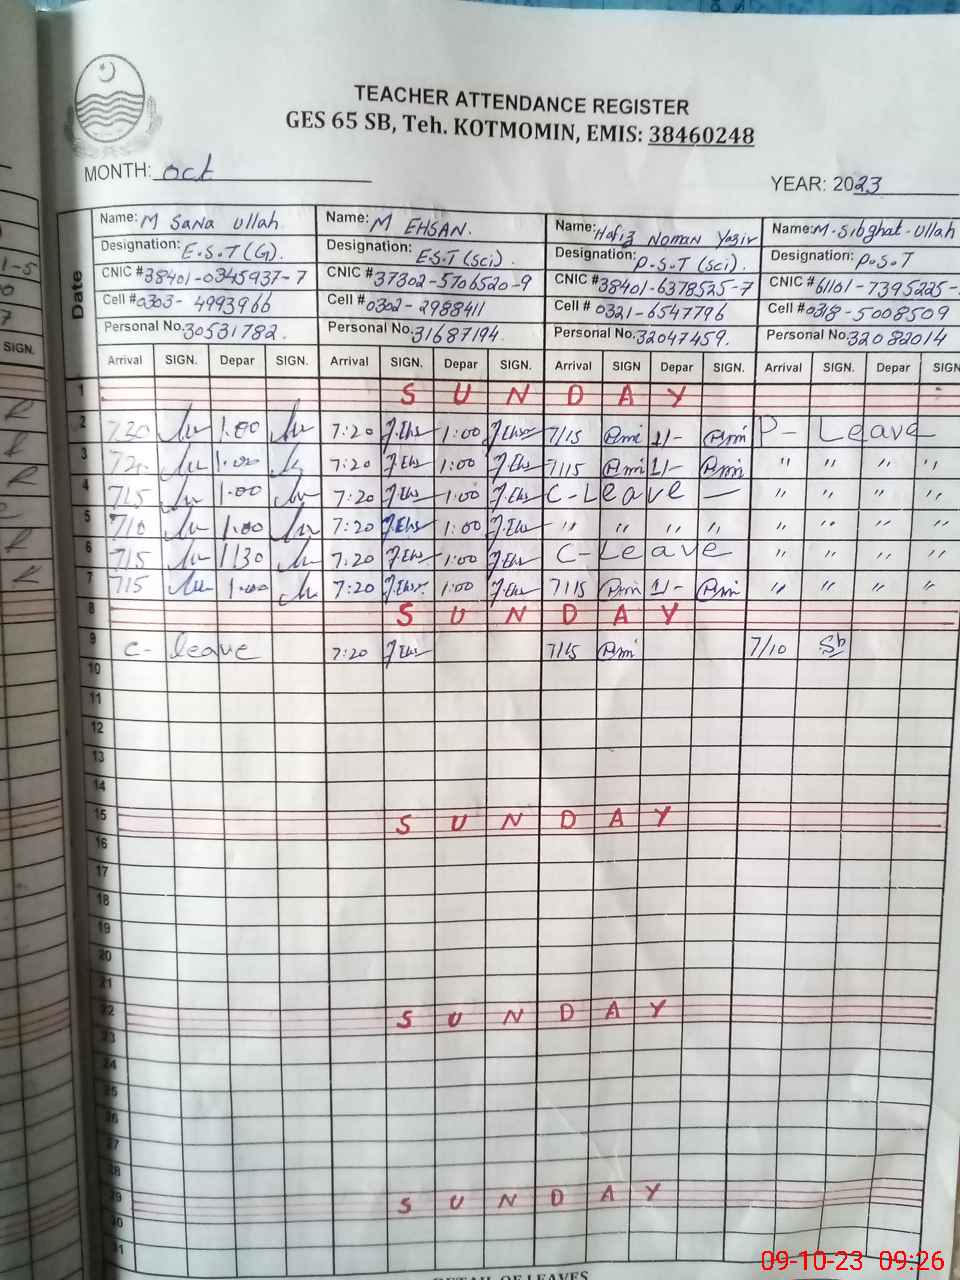 TEACHER ATTENDANCE REGISTER
GES 65 SB, Teh. KOTMOMIN, EMIS: 38460248
MONTH: oct
YEAR: 2023
Date
Name: M Sana Ullah Name: M EHSAN. Name: Hafiz Noman Yasir Name: M. Sibghat-Ullah
Designation: E.S.T (G). Designation: E.S.T (Sci) Designation: P.S.T (Sci). Designation: P.S.T
CNIC # 38401-0345937-7 CNIC # 37302-5706520-9 CNIC # 38401-6378525-7 CNIC # 61101-7395225-
Cell # 0303-4993966 Cell # 0302-2988411 Cell # 0321-6547796 Cell # 0318-5008509
Personal No. 30531782. Personal No. 31687194. Personal No. 32047459. Personal No. 32082014
SIGN. Arrival SIGN. Depar SIGN. Arrival SIGN. Depar SIGN. Arrival SIGN Depar SIGN. Arrival SIGN. Depar SIGN
1 S U N D A Y
2 7 20 1.00 7:20 J.Ehs 1:00 J.Ehsn 7/15 1/- P- Leave
3 1:00 7:20 J.Ehs 1:00 J.Ehs 7/15 1/- " " " "
4 715 1.00 7:20 J.Ehs 1:00 J.Ehs C-Leave — " " " "
5 710 1.00 7:20 J.Ehs 1:00 J.Ehs " " " " " " " "
6 715 1130 7:20 J.Ehs 1:00 J.Ehs C-Leave " " " "
7 715 1.00 7:20 J.Ehsn 1:00 J.Ehs 7/15 1/- " " " "
8 S U N D A Y
9 C- leave 7:20 J Ehs 7/15 7/10
10
11
12
13
14
15 S U N D A Y
16
17
18
19
20
21
22 S U N D A Y
23
24
25
26
27
28
29 S U N D A Y
30
31
DETAIL OF LEAVES
09-10-23 09:26